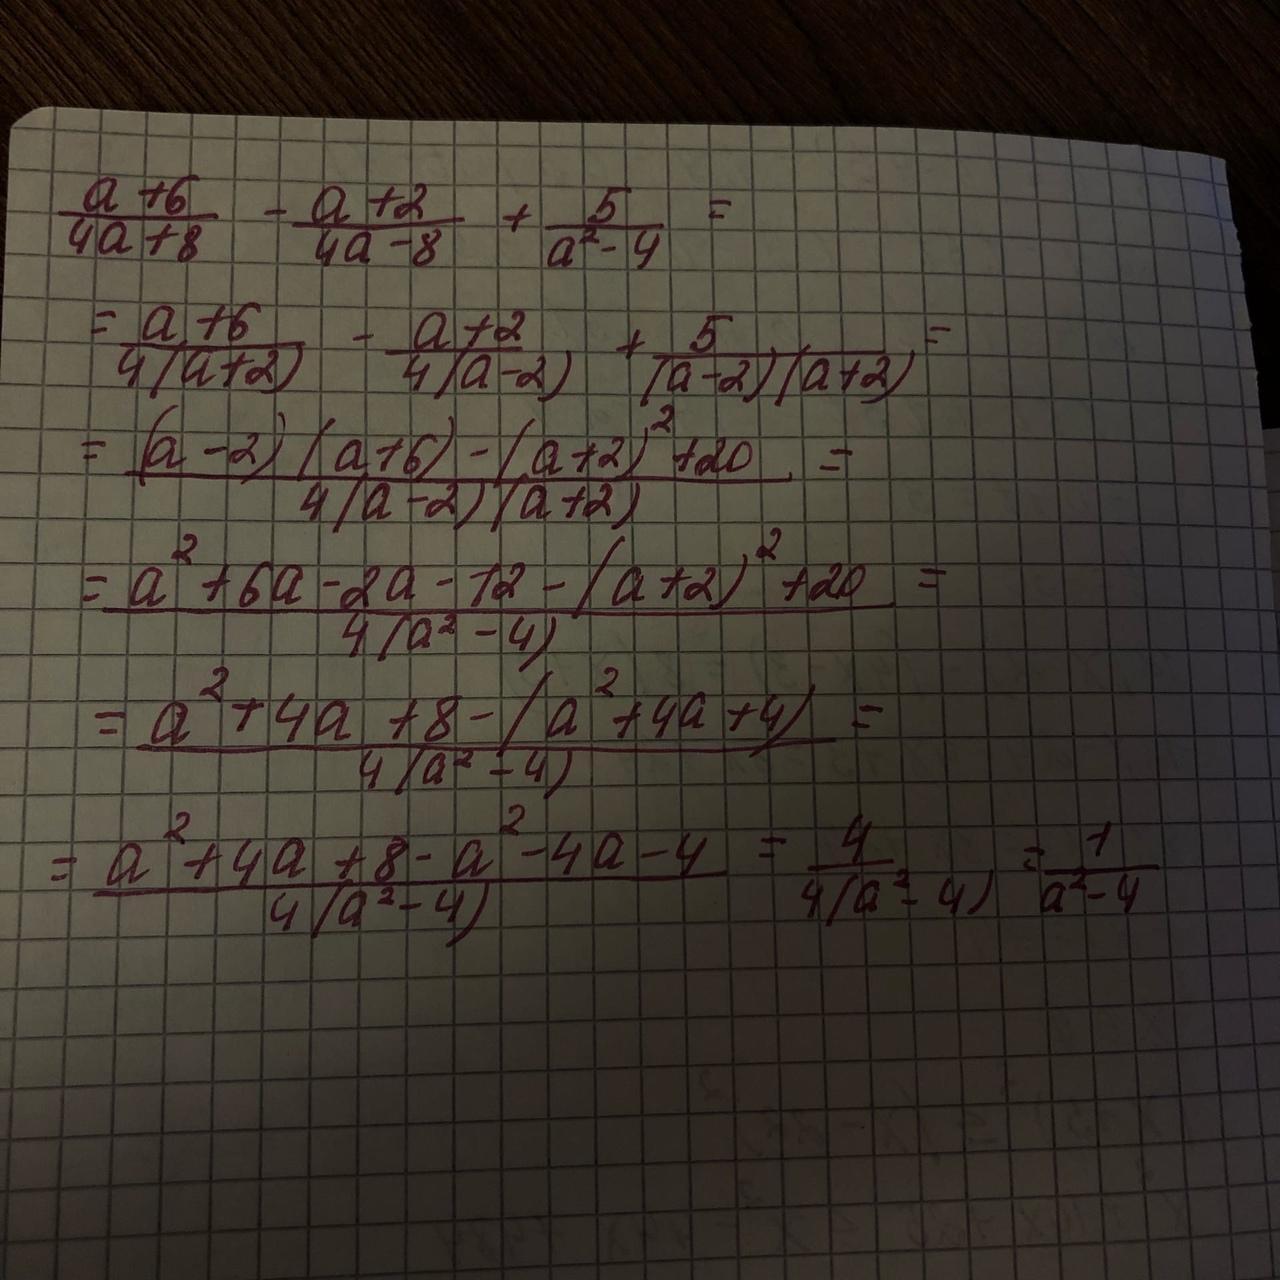 (a+6)/(4a+8) - (a+2)/(4a-8) + 5/(a²-4) =
= (a+6)/(4(a+2)) - (a+2)/(4(a-2)) + 5/((a-2)(a+2)) =
= ((a-2)(a+6)-(a+2)²+20)/(4(a-2)(a+2)) =
= (a²+6a-2a-12-(a+2)²+20)/(4(a²-4)) =
= (a²+4a+8-(a²+4a+4))/(4(a²-4)) =
= (a²+4a+8-a²-4a-4)/(4(a²-4)) = 4/(4(a²-4)) = 1/(a²-4)